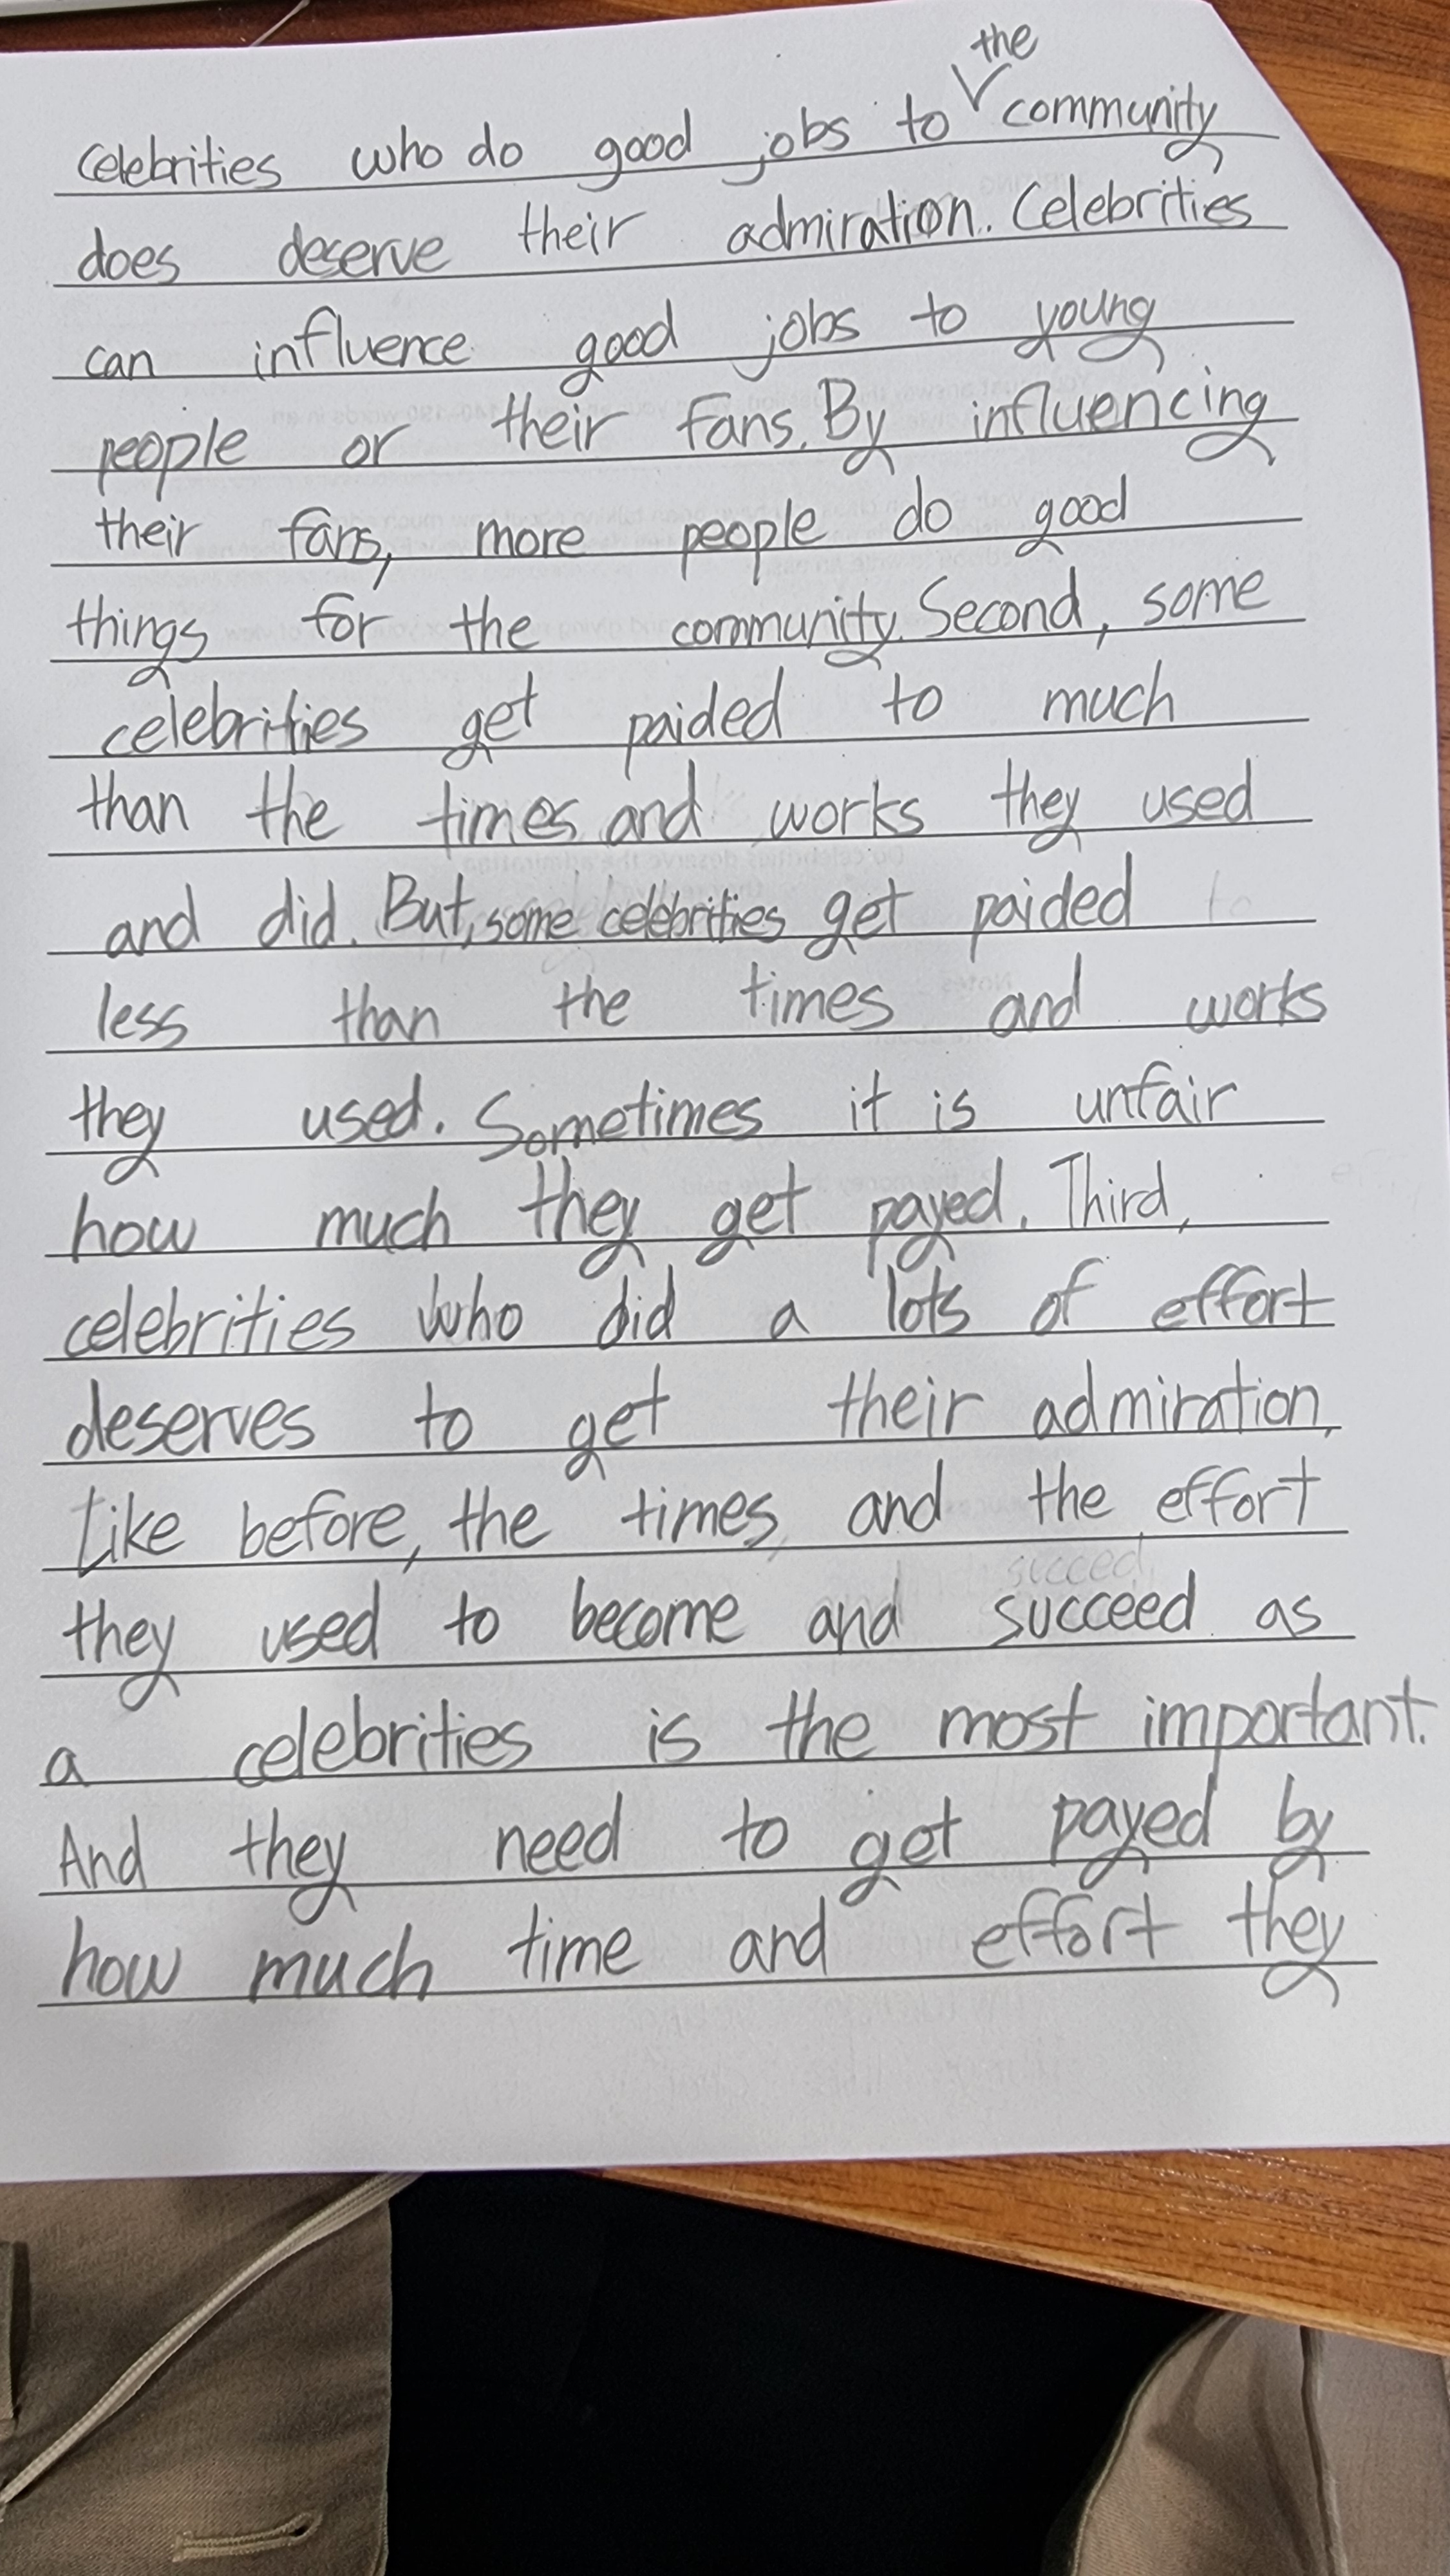 the
celebrities who do good jobs to community
does deserve their admiration. Celebrities
can influence good jobs to young
people or their fans. By influencing
their fans, more people do good
things for the community. Second, some
celebrities get paided to much
than the times and works they used
and did. But, some celebrities get paided to
less than the times and works
they used. Sometimes it is unfair
how much they get payed. Third,
celebrities who did a lots of effort
deserves to get their admiration,
Like before, the times, and the effort
succeed
they used to become and succeed as
a celebrities is the most important.
And they need to get payed by
how much time and effort they